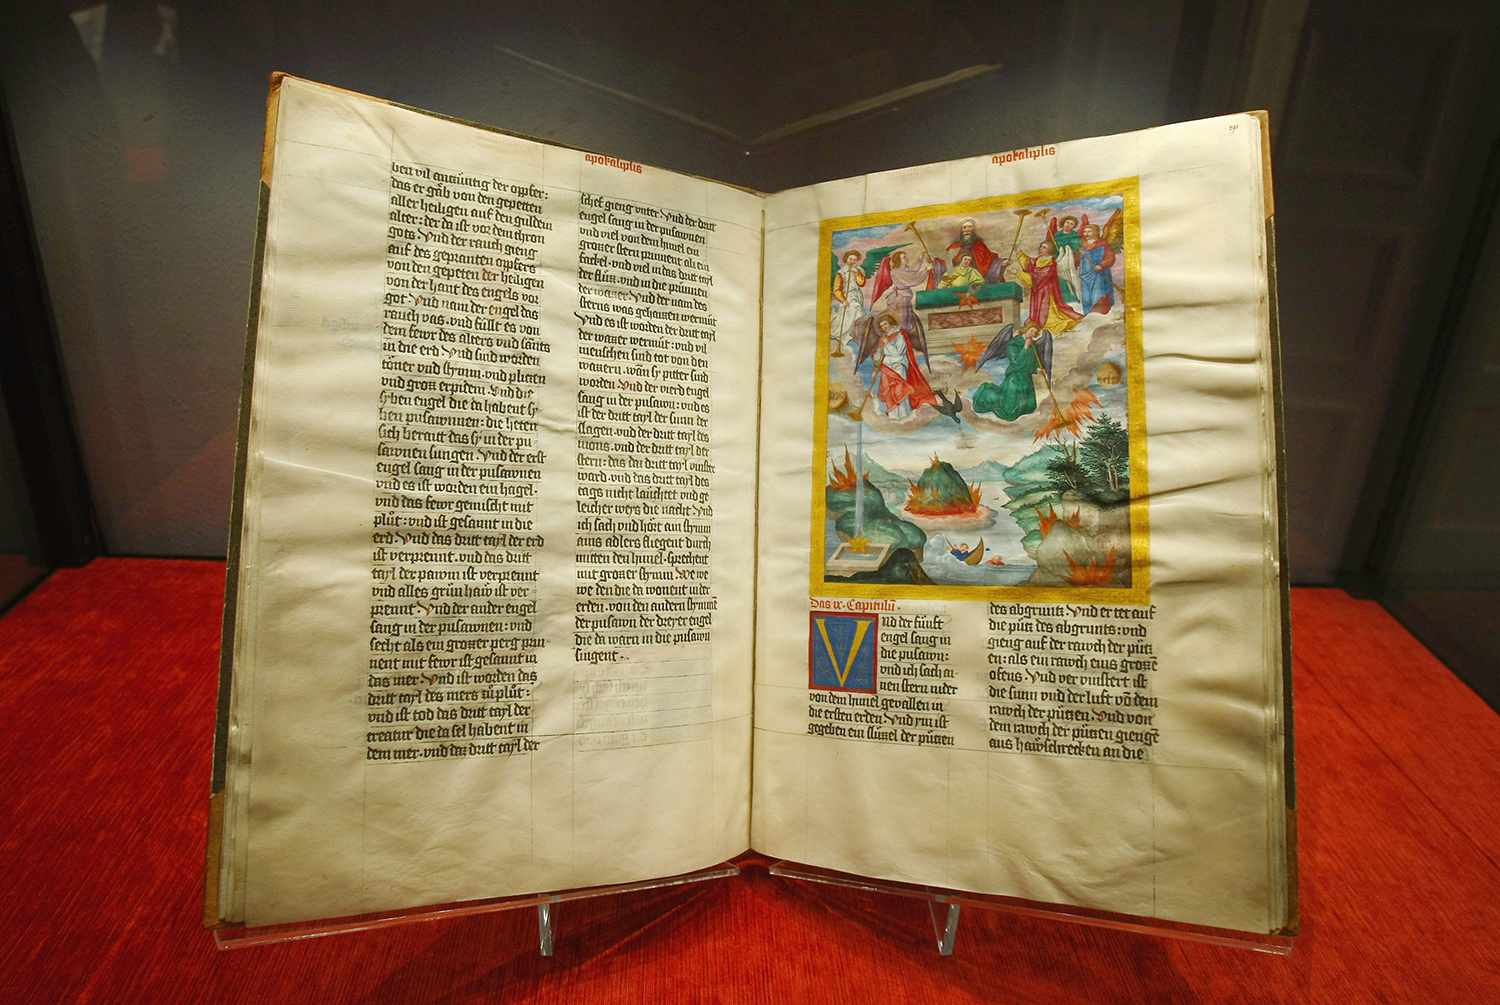 apokaliplis
ben vil antzüntig der opffer:
das er gäb von den gepetten
aller heiligen auf den guldein
alter: der da ist vor dem thron
gots Vnd der rauch gieng
auf des gepranten opffers
von den gepeten der heiligen
von der hant des engels vor
got. Vnd nam der engel das
rauch vas. vnd füllt es von
dem fewr des alters vnd sants
in die erd. Vnd sind worden
töner vnd stymm. vnd plitzen
vnd gross erpidem. Vnd die
syben engel die da habent sy
ben pusawnnen: die heten
sich beraitt das sy in der pu-
sawnen sungen. Vnd der erst
engel sang in der pusawnen
vnd es ist worden ein hagel.
vnd das fewr gemischt mit
plut: vnd ist gesannt in die
erd. Vnd das dritt tayl der erd
ist verprennt. vnd das dritt
tayl der pawm ist verprennt
vnd alles grün haw ist ver-
prennt. Vnd der ander engel
sang in der pusawnen: vnd
secht als ein grozzer perg prin-
nent mit fewr ist gesannt in
das mer. Vnd ist worden das
dritt tayl des mers zu plut:
vnd ist tod das dritt tayl der
creatur die da sel habent in
dem mer. vnd daz dritt tayl der
schef gieng vnter. Vnd der dritt
engel sang in der pusawnen
vnd viel von dem himel ein
grozzer stern prinnent als ein
fackel. vnd viel in das dritt tayl
der flüzz. vnd in die prünnen
der wazzer. Vnd der nam des
sterns was gehaizzen wermut
Vnd es ist worden der dritt tayl
der wazzer wermut: vnd vil
menschen sind tot von den
wazzern. wan sy pitter sind
worden. Vnd der vierd engel
sang in der pusawn: vnd es
ist der dritt tayl der sunn ge
slagen. vnd der dritt tayl des
mons. vnd der dritt tayl der
stern: das das dritt tayl vinster
ward. vnd das dritt tayl des
tags nicht läuchtet vnd ge
leicher weys die nacht. Vnd
ich sach vnd hört ain stymm
ains adlers fliegent durch
mitten den himel. sprechent
mit grozzer stymm. We we
we den die da wonent in der
erden. von den andern stymmen
der pusawn der dreyer engel
die da warn in die pusawn
singent.
apokaliplis
Das ix. Capitulum.
Vnd der fünfft
engel sang in
die pusawn:
vnd ich sach ai-
nen stern nider
von dem himel gevallen in
die ersten erden. Vnd ym ist
gegeben ein slüzzel der pützen
des abgrunts. Vnd er tet auf
die pütz des abgrunts: vnd
gieng auf der rawch der pütz
en: als ein rawch eins grozzen
ofens. Vnd ver vinstert ist
die sunn vnd der luft von dem
rawch der pützen. Vnd von
dem rawch der pützen giengen
aus hawschrecken an die